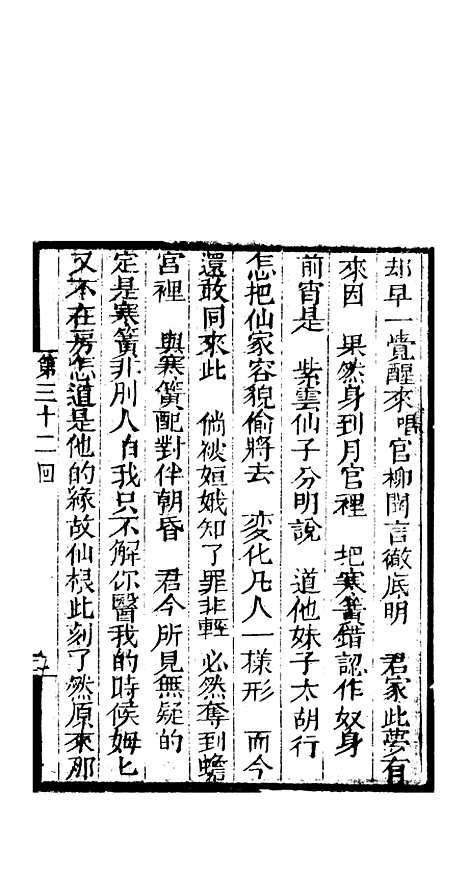 却早一覺醒來唱官柳聞言徹底明　君家此夢有
來因　果然身到月宮裡　把寒簧錯認作奴身
前宵是　紫雲仙子分明說　道他妹子太胡行
怎把仙家容貌偷將去　变化凡人一樣形　而今
還敢同來此　倘被姮娥知了罪非輕　必然奪到蟾
宮裡　與寒簧配對伴朝昏　君今所見無疑的
定是寒簧非別人白我只不解你醫我的時候姆匕
又不在房怎道是他的緣故仙根此刻了然原來那
第三十二回